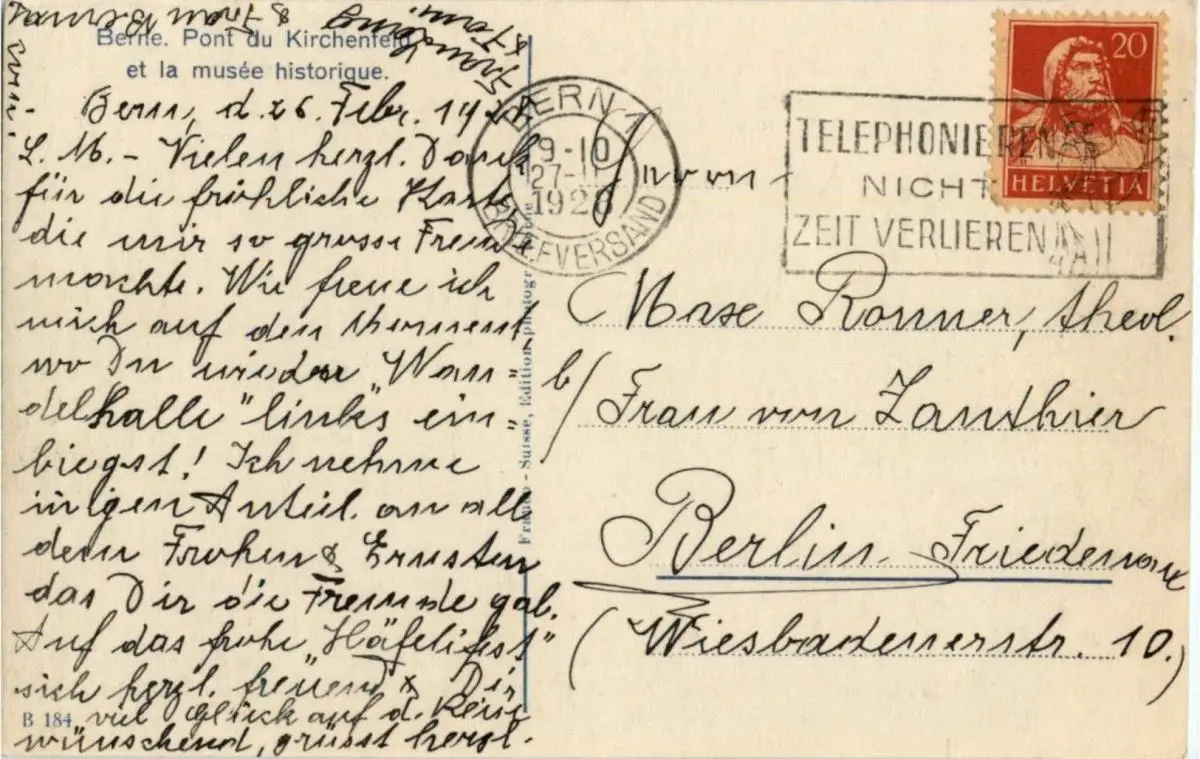 Berne. Pont du Kirchenfeld
et la musée historique.
Bern, d. 26. Febr. 1921.
L. M. - Vielen herzl. Dank
für die fröhliche Karte
die mir so grosse Freude
machte. Wie freue ich
mich auf den Moment
wo Du wieder „Wan=
delhalle" links ein=
biegst! Ich nehme
innigen Anteil an all
dem Frohen & Ernsten
das Dir die Freunde gab.
Auf das frohe „Häfelifest"
sich herzl. freuend & Dir
viel Glück auf d. Reise
wünschend, grüsst herzl.
& Frau
& Fam.
B 184
Franco-Suisse, Edition photogr
BERN 1
9-10
27-II
192
BRIEFVERSAND
TELEPHONIEREN
NICHT
ZEIT VERLIEREN
20
HELVETIA
Herrn
Max Ronner, theol.
b/ Frau von Zanthier
Berlin-Friedenau
(Wiesbadenerstr. 10.)